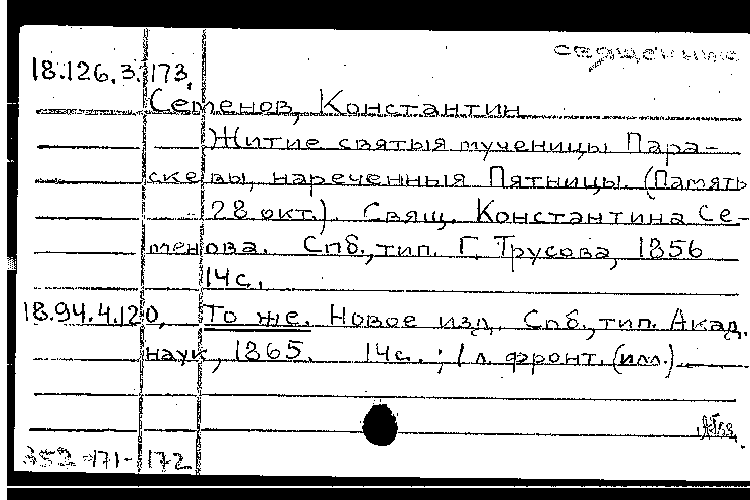 священник
18.126.3.173.
Семенов, Константин
Житие святыя мученицы Пара-
скевы, нареченныя Пятницы. (Память
28 окт.). Свящ. Константина Се-
менова. Спб., тип. Г. Трусова, 1856
14с.
18.94.4.120, То же. Новое изд. Спб., тип. Акад.
наук, 1865. 14с.; 1 л. фронт. (илл.)
352-171-172